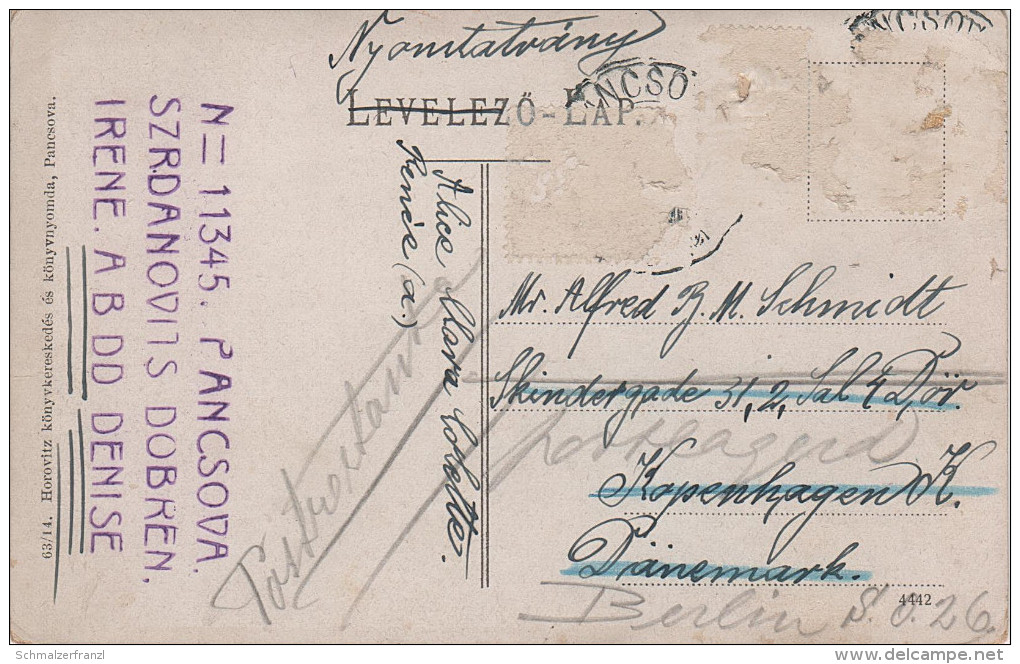 Nyomtatvány
NCSO
NCSO
LEVELEZŐ-LAP.
63/14. Horovitz könyvkereskedés és könyvnyomda, Pancsova.
N= 11345. PANCSOVA.
SZRDANOVITS DOBREN.
IRENE. A B DD DENISE
Alice Clara Colette.
Renée (a.)
Mr. Alfred B. M. Schmidt
Skindergade 31, 2, Sal 4 Dör.
postlagernd
Kopenhagen K.
Dänemark.
4442
Berlin S.O. 26.
Schmalzerfranzl
PICTURES NOT FOR COPY! www.delcampe.net